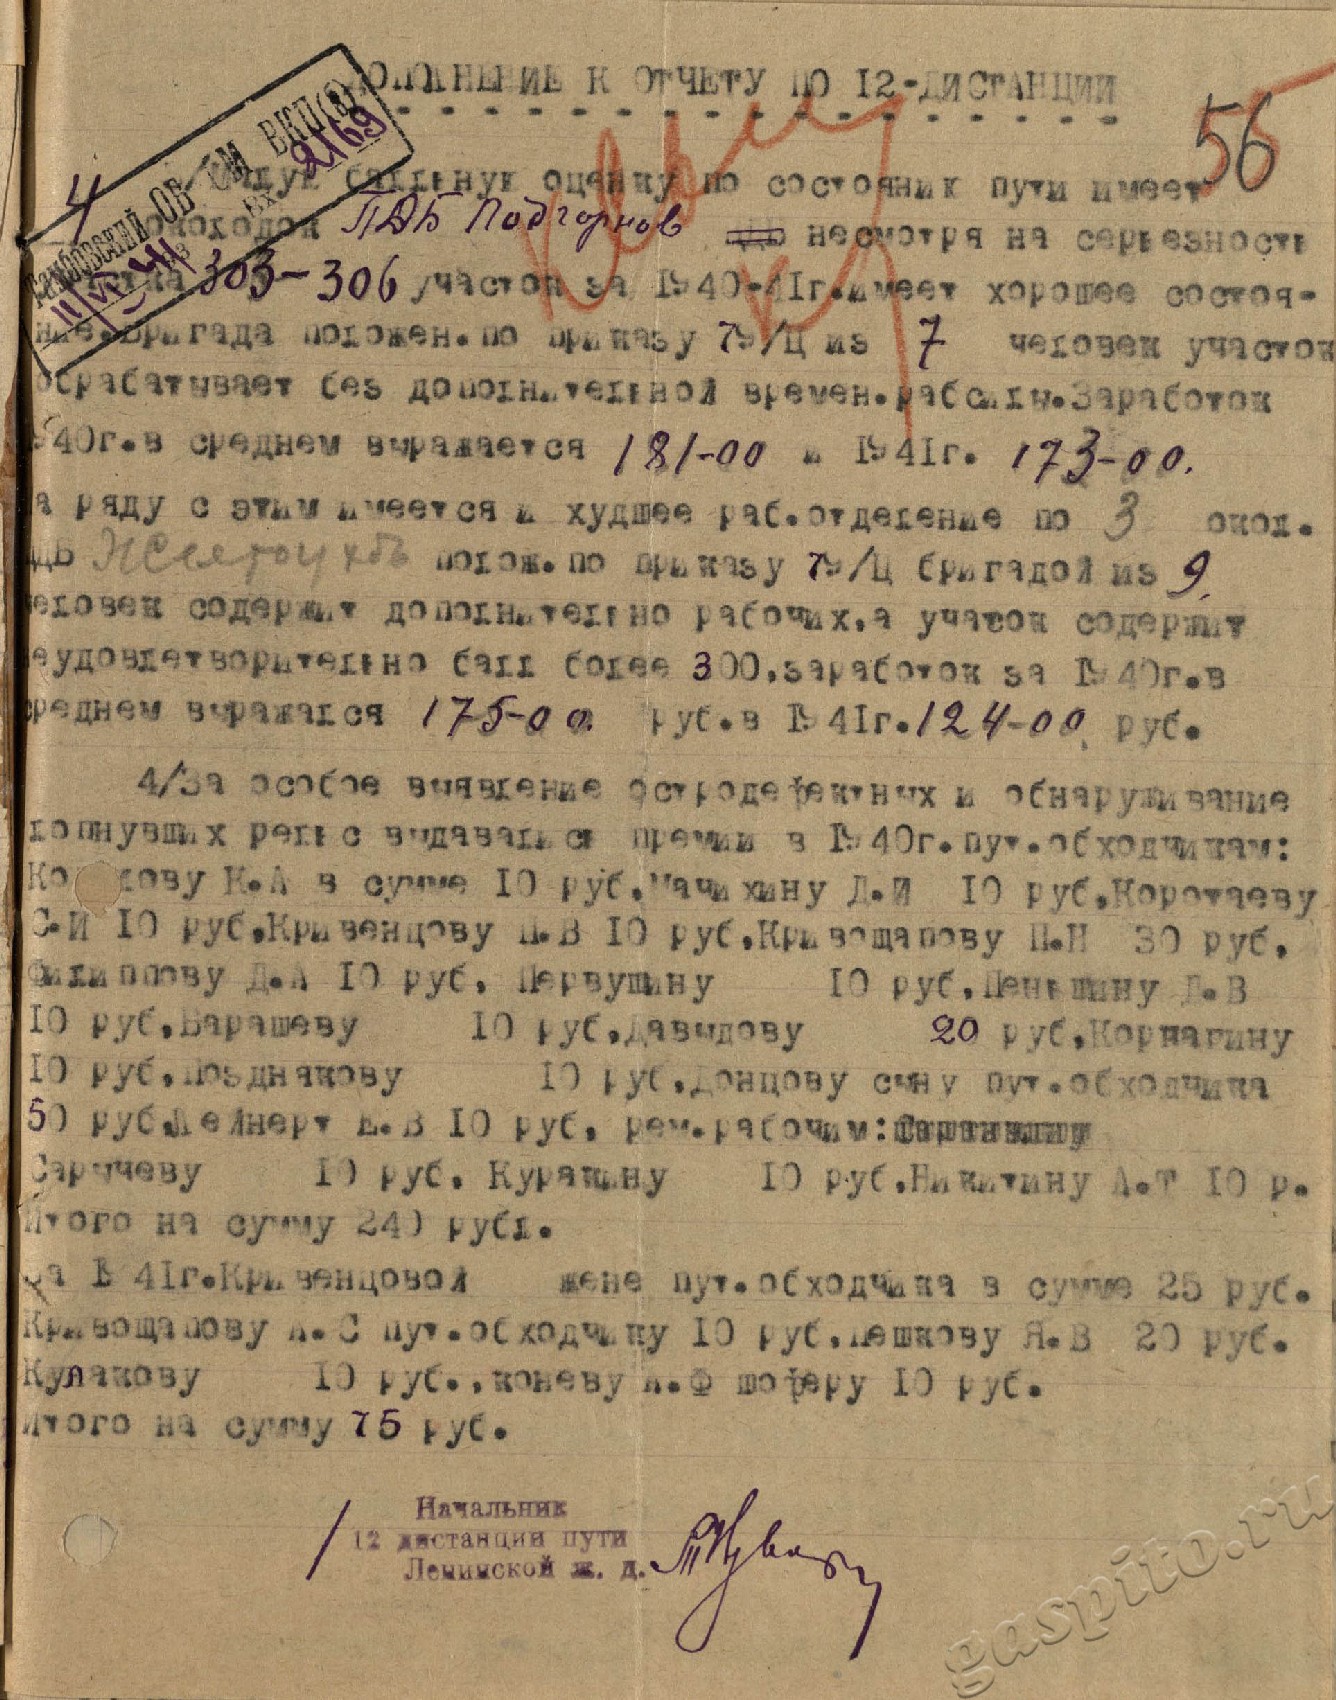 ДОПОЛНЕНИЕ К ОТЧЕТУ ПО 12-ДИСТАНЦИИ
56
Тамбовский ОБКОМ ВКП(б)
Вх 2169
11/VII-41
балльную оценку по состоянию пути имеет
4 околоток ПДБ Подгорнов несмотря на серьезность
303-306 участок за 1940-41г.имеет хорошее состоя-
ние.Бригада положен.по приказу 79/Ц из 7 человек участок
обрабатывает без дополнительной времен.рабсилы.Заработок
1940г.в среднем выражается 181-00 и 1941г. 173-00.
на ряду с этим имеется и худшее раб.отделение по 3 окол.
ПДБ полож.по приказу 79/Ц бригадой из 9.
человек содержит дополнительно рабочих,а участок содержит
неудовлетворительно балл более 300,заработок за 1940г.в
среднем выражался 175-00 руб.в 1941г.124-00 руб.
4/За особое выявление остродефектных и обнаруживание
лопнувших рельс выдавались премии в 1940г.пут.обходчикам:
К.А в сумме 10 руб,Мачихину Д.И 10 руб,Коротаеву
С.И 10 руб,Кривенцову П.В 10 руб,Кривощапову П.Н 30 руб,
Филиппову Д.А 10 руб, Первушину 10 руб,Пеньшину Д.В
10 руб,Барашеву 10 руб,Давыдову 20 руб,Корнагину
10 руб,Позднякову 10 руб,Донцову сыну пут.обходчика
50 руб,Мейнерт Е.В 10 руб, рем.рабочим:
Сарычеву 10 руб, Куракину 10 руб,Никитину А.Т 10 р.
Итого на сумму 240 рубл.
За 1941г.Кривенцовой жене пут.обходчика в сумме 25 руб.
Кривощапову А.С пут.обходчику 10 руб,Пешкову Я.В 20 руб.
Кулакову 10 руб.,коневу А.Ф шоферу 10 руб.
Итого на сумму 75 руб.
Начальник
12 дистанции пути
Ленинской ж. д.
gaspito.ru